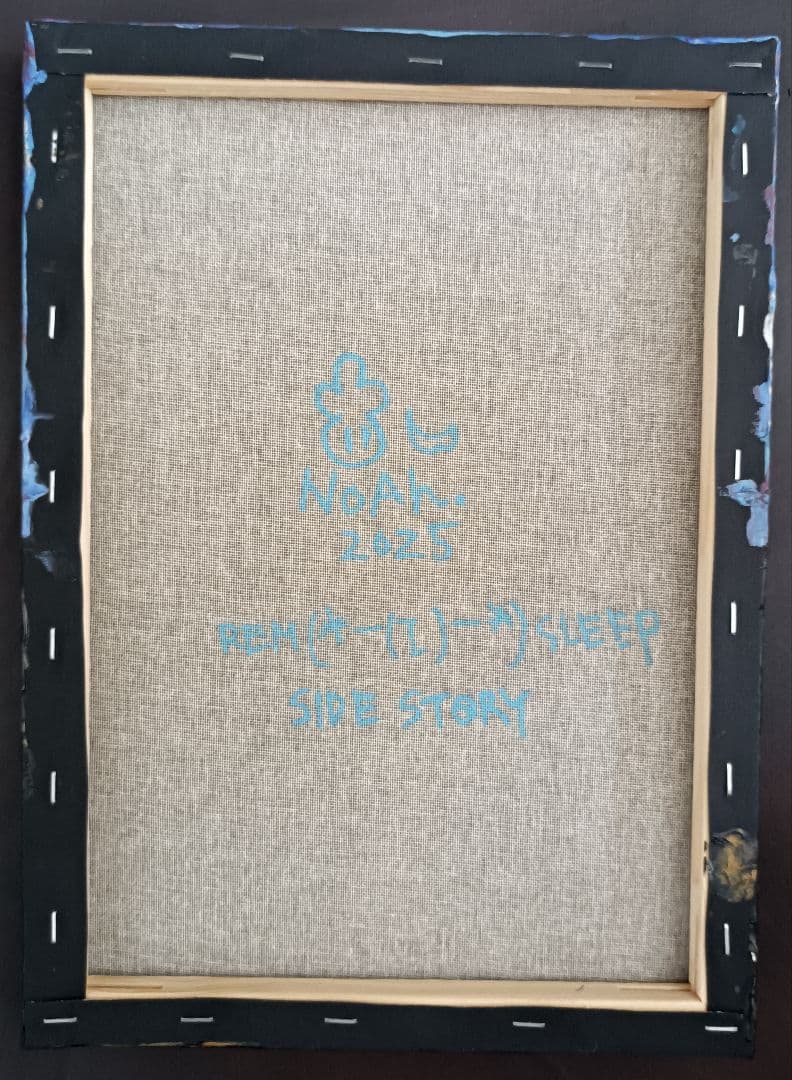 NoAh.
2025
REM(*-(I)-*)SLEEP
SIDE STORY